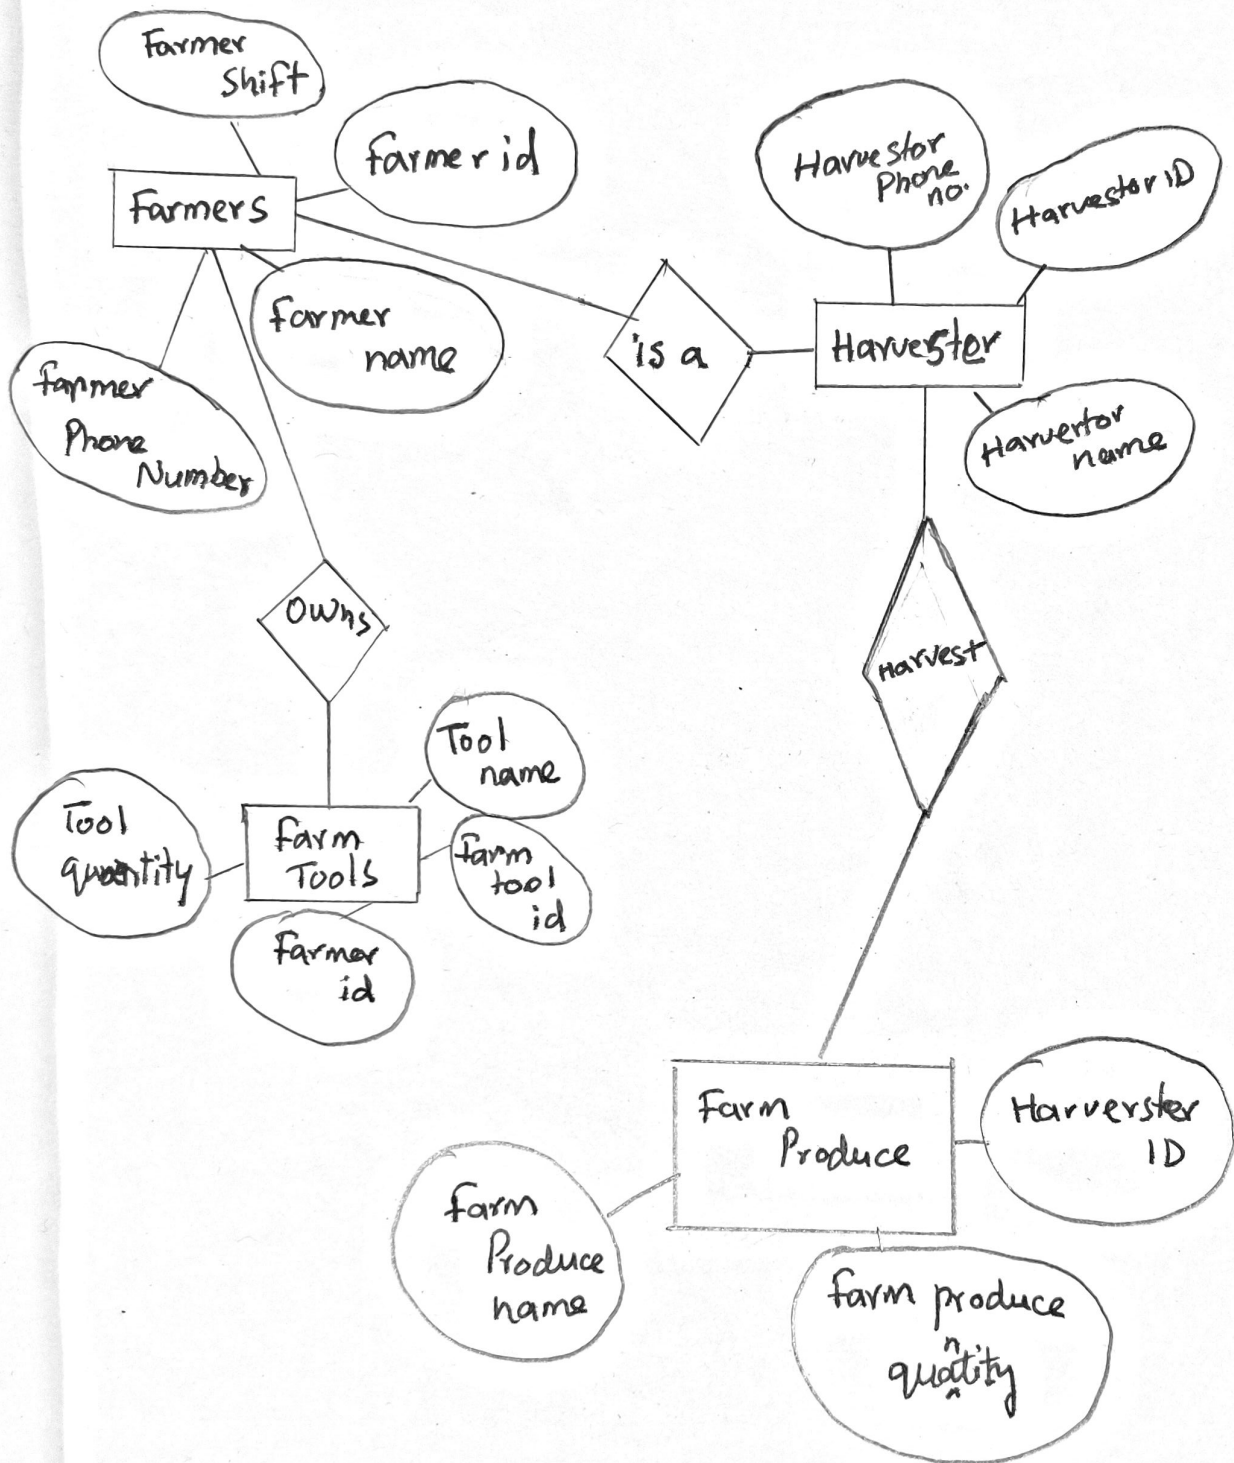 Farmer
Shift
Farmer id
Farmers
Farmer
name
Farmer
Phone
Number
is a
Harvestor
Phone
no.
Harvestor ID
Harvestor
Harvertor
name
Owns
Harvest
Tool
name
Tool
quantity
Farm
Tools
Farm
tool
id
Farmer
id
Farm
Produce
Harverster
ID
Farm
Produce
name
Farm produce
quantity